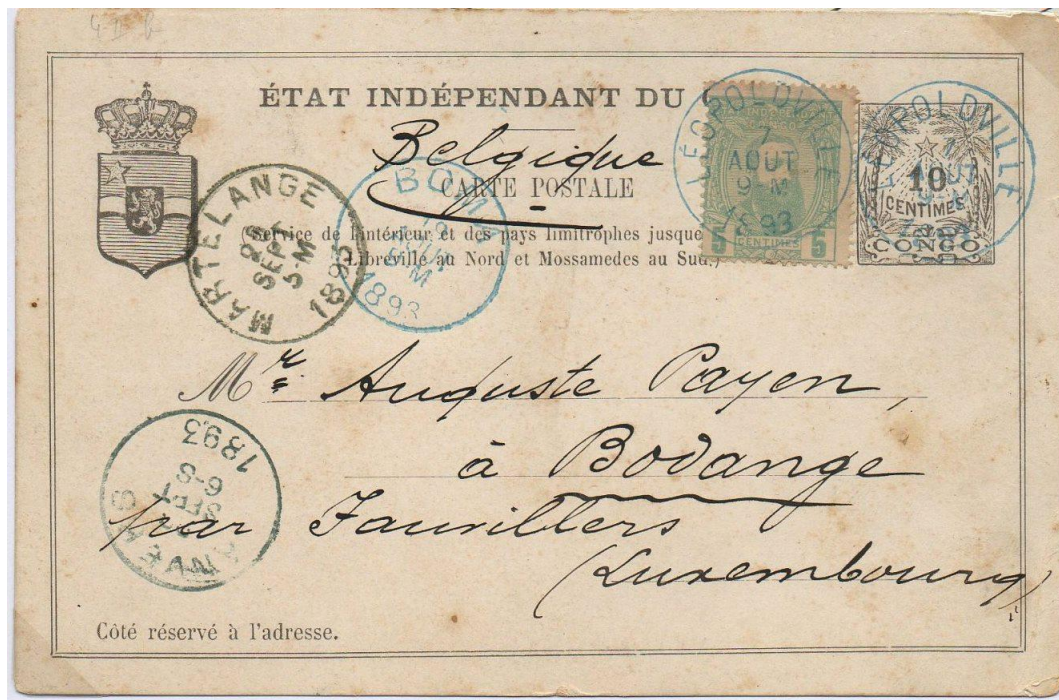 ÉTAT INDÉPENDANT DU
Belgique
CARTE POSTALE
Service de l'intérieur et des pays limitrophes jusque
Libreville au Nord et Mossamedes au Sud.)
LÉOPOLDVILLE
7
AOUT
9-M
1893
5 CENTIMES 5
LÉOPOLDVILLE
10
CENTIMES
CONGO
MARTELANGE
SEPT
5-M
1893
BOMA
1893
Mr Auguste Payen,
à Bodange
par Fauvillers
(Luxembourg)
ANVERS
SEPT
6-S
1893
Côté réservé à l'adresse.